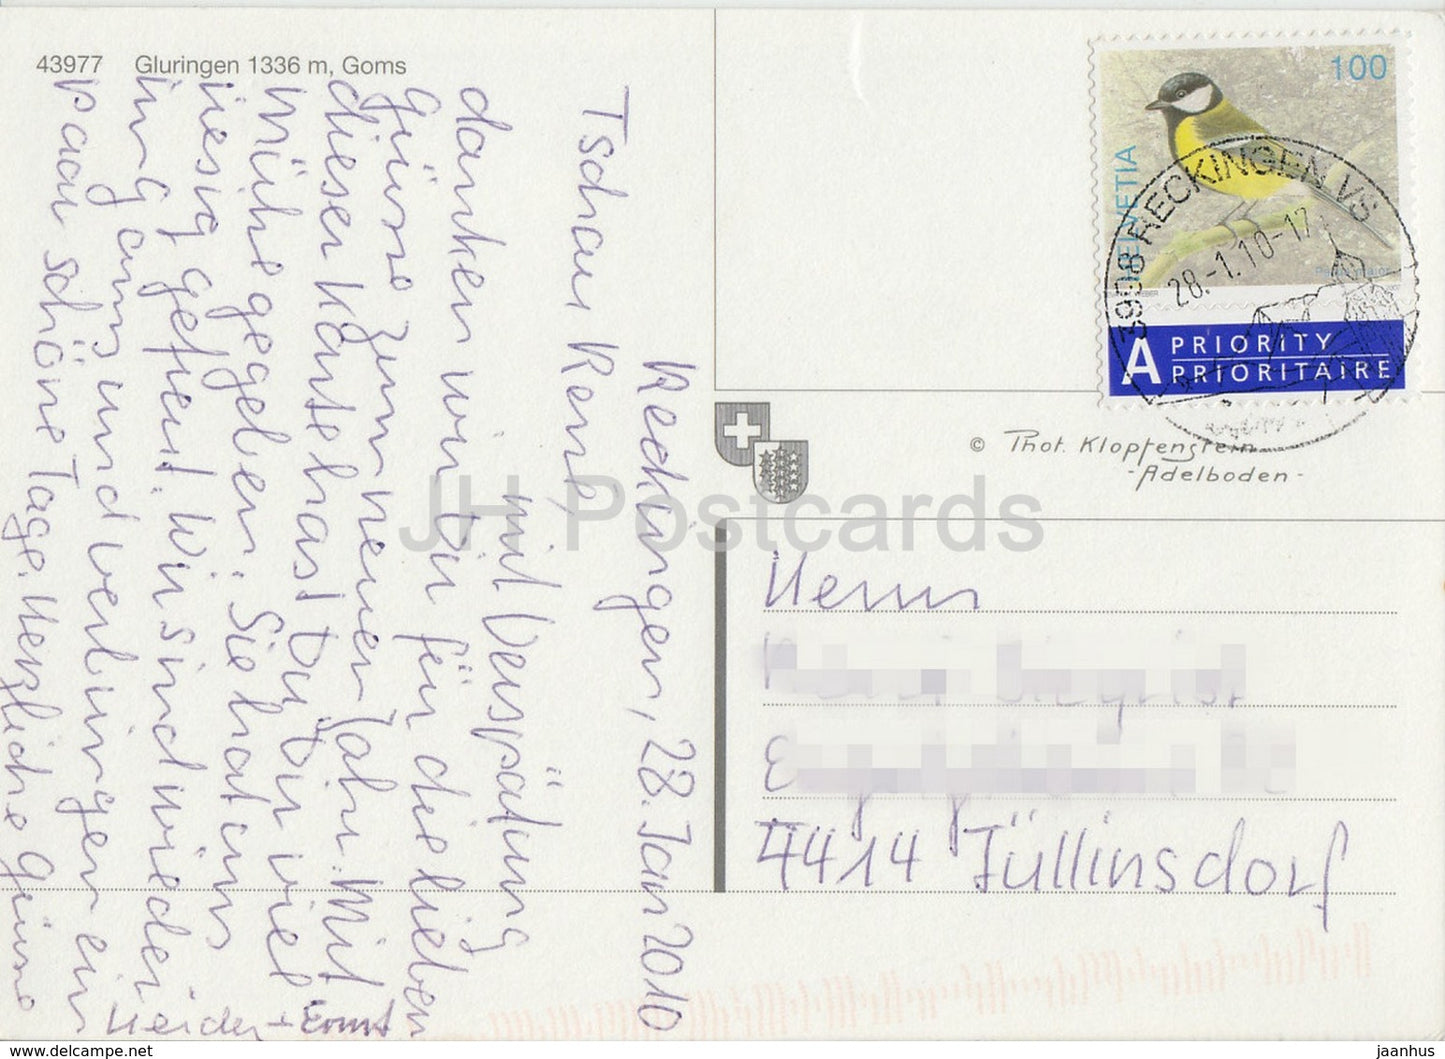 43977 Gluringen 1336 m, Goms
Reckingen, 28. Jan 2010
Tschau René,
mit Verspätung
danken wir Dir für die lieben
Grüsse zum neuen Jahr. Mit
dieser Karte hast Du Dir viel
Mühe gegeben. Sie hat uns
riesig gefreut. Wir sind wieder
im g und verbringen ein
paar schöne Tage. Herzliche Grüsse
Heidy + Ernst
100
HELVETIA
3998 RECKINGEN VS
28.-1.10-17
A PRIORITY
PRIORITAIRE
© Phot. Klopfenstein
- Adelboden -
Herrn
4414 Füllinsdorf
JH Postcards
www.delcampe.net
jaanhus